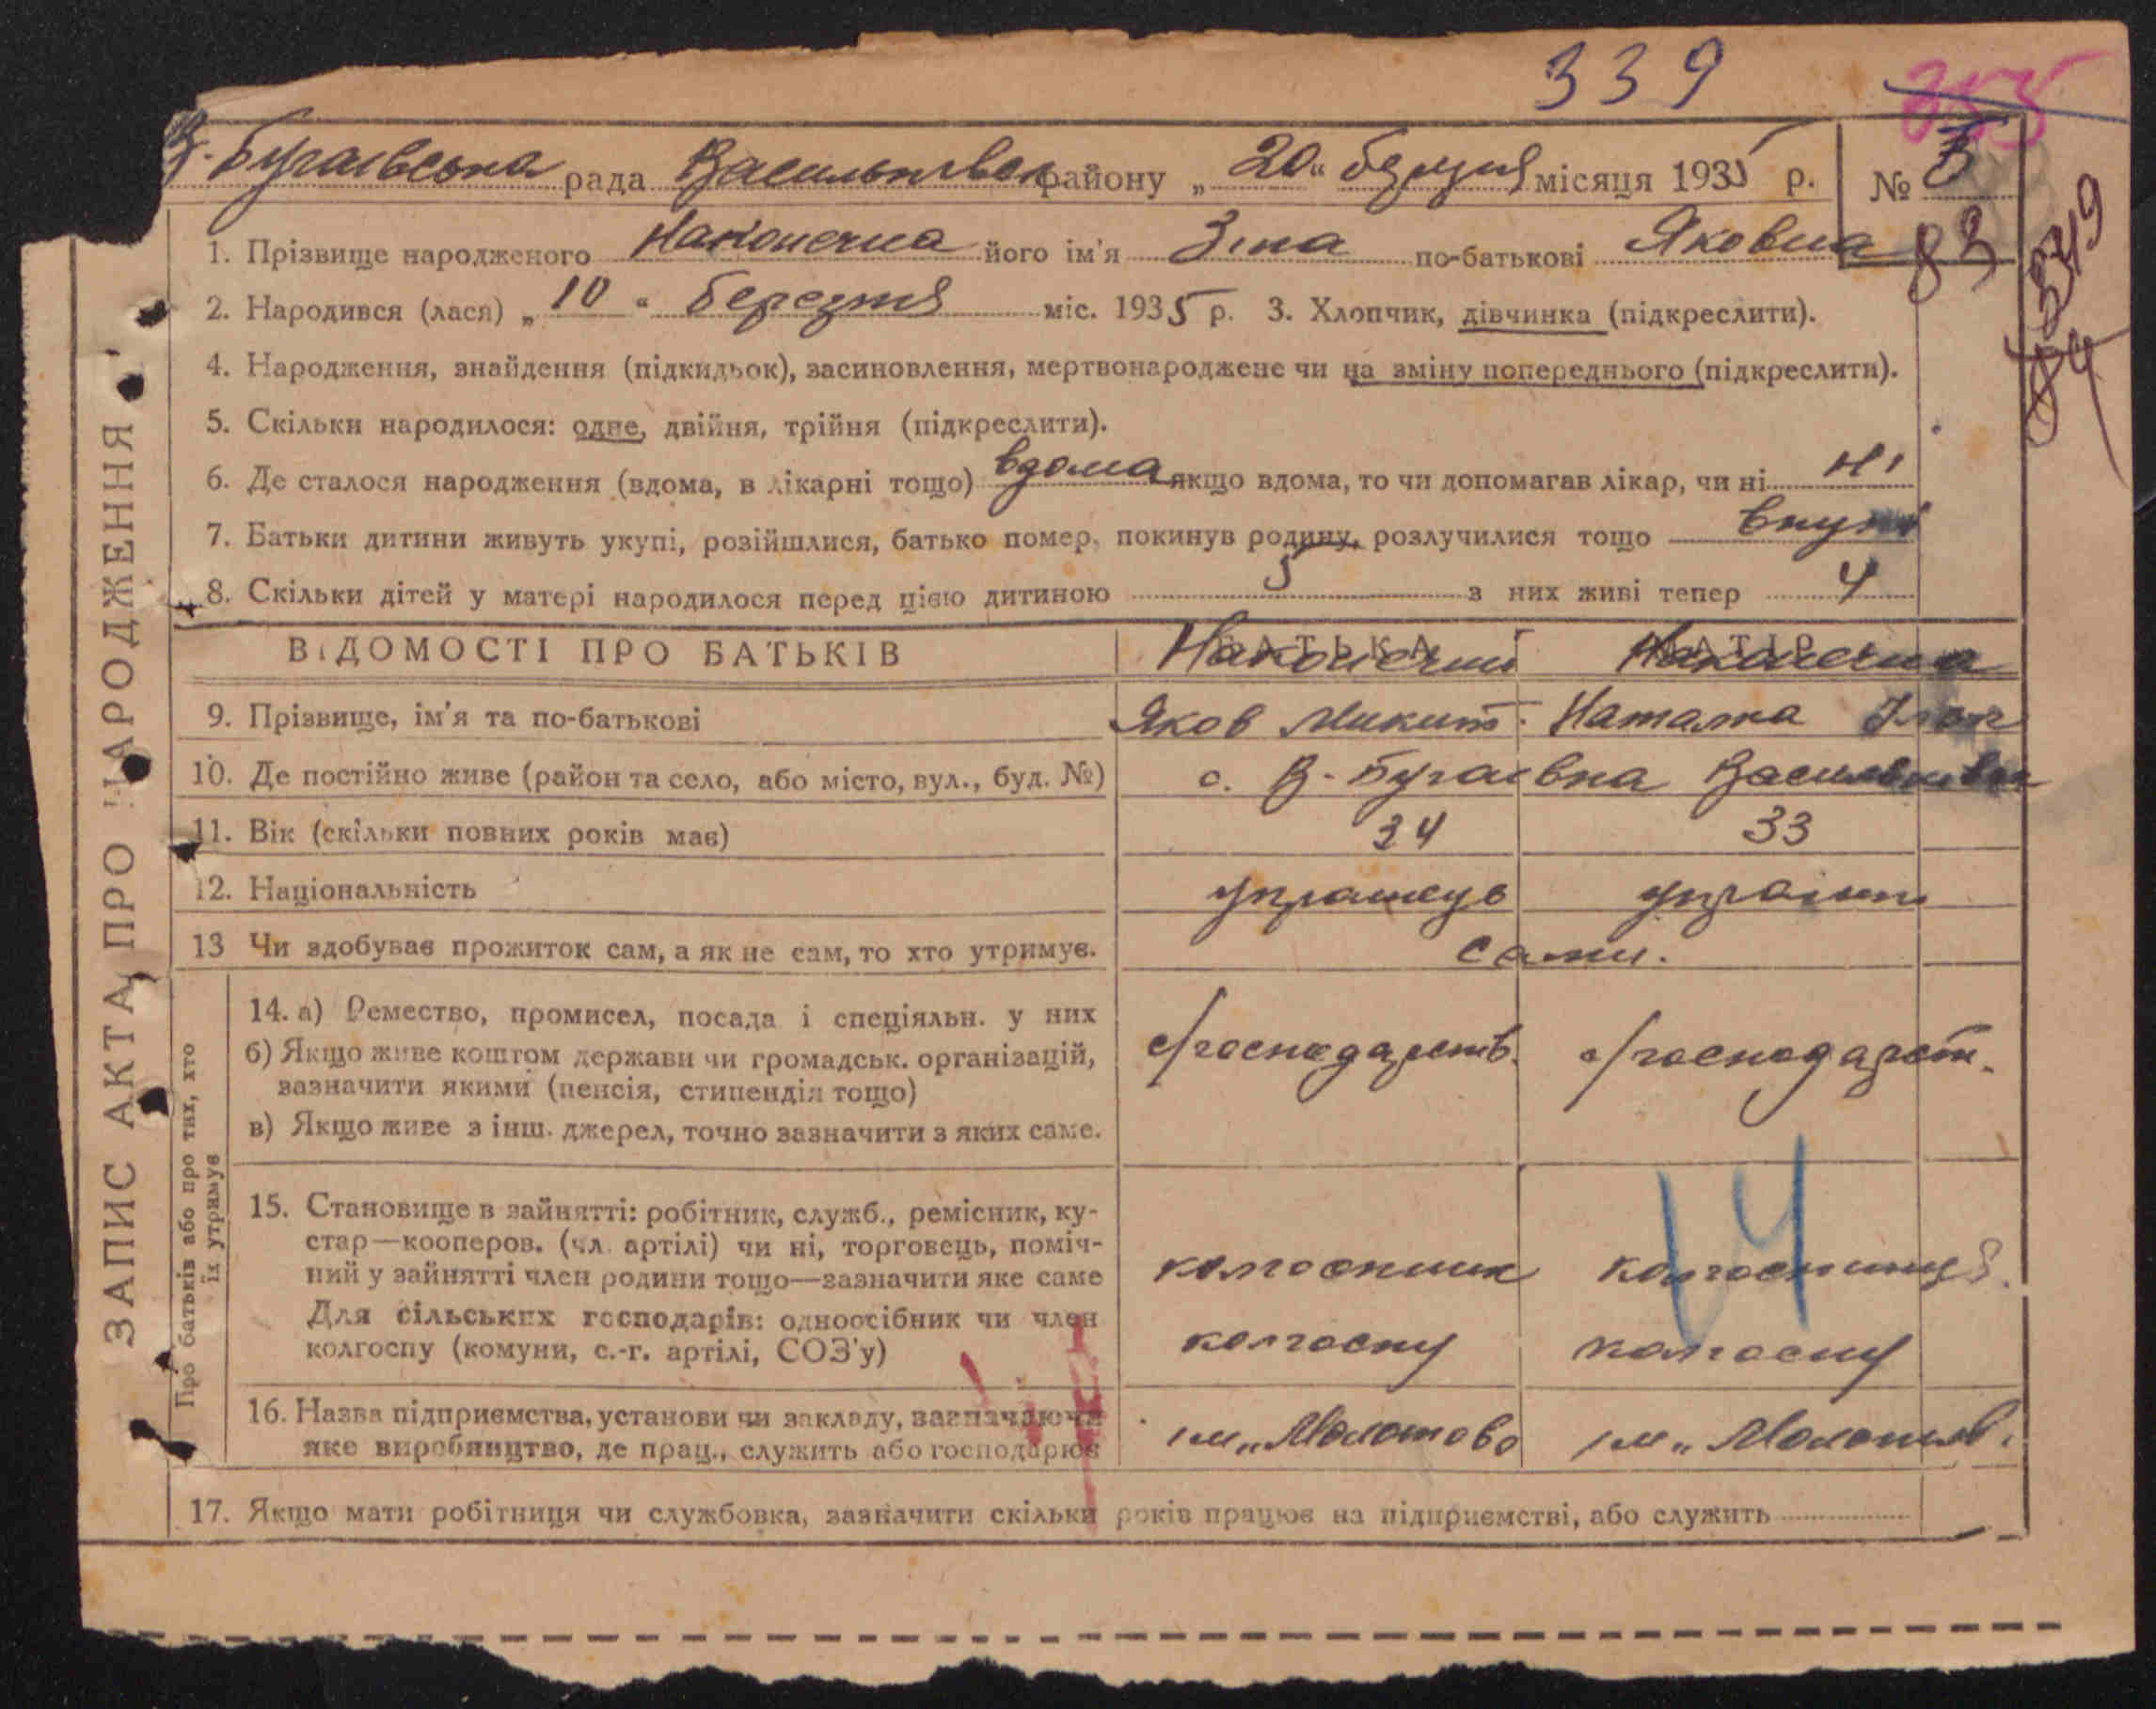 339
355
В. Бугаївська рада Васильківськ району „20“ березня місяця 1935 р. №
83
349
84
1. Прізвище народженого Наконечна його ім'я Зіна по-батькові Яковна
2. Народився (лася) „10“ березня міс. 1935 р. 3. Хлопчик, дівчинка (підкреслити).
4. Народження, знайдення (підкидьок), засиновлення, мертвонароджене чи на зміну попереднього (підкреслити).
5. Скільки народилося: одне, двійня, трійня (підкреслити).
6. Де сталося народження (вдома, в лікарні тощо) вдома якщо вдома, то чи допомагав лікар, чи ні ні
7. Батьки дитини живуть укупі, розійшлися, батько помер, покинув родину, розлучилися тощо вкупі
8. Скільки дітей у матері народилося перед цією дитиною 5 з них живі тепер 4
ВІДОМОСТІ ПРО БАТЬКІВ БАТЬКА МАТІР
Наконечний Наконечна
9. Прізвище, ім'я та по-батькові Яков Микит. Наталка
10. Де постійно живе (район та село, або місто, вул., буд. №) с. В-Бугаївка Васильківськ
11. Вік (скільки повних років має) 34 33
12. Національність українець україн
13 Чи здобуває прожиток сам, а як не сам, то хто утримує. сами.
14. а) Ремество, промисел, посада і спеціяльн. у них
б) Якщо живе коштом держави чи громадськ. організацій, с/господарств. с/господарст.
зазначити якими (пенсія, стипендія тощо)
в) Якщо живе з інш. джерел, точно зазначити з яких саме.
14
15. Становище в зайнятті: робітник, служб., ремісник, ку-
стар—кооперов. (чл. артілі) чи ні, торговець, поміч-
ний у зайнятті член родини тощо—зазначити яке саме колгоспник колгоспниця.
Для сільських господарів: одноосібник чи член
колгоспу (комуни, с.-г. артілі, СОЗ'у) колгоспу колгоспу
16. Назва підприємства, установи чи закладу, зазначаючи
яке виробництво, де прац., служить або господарює ім „Молотова ім „Молотов.
17. Якщо мати робітниця чи службовка, зазначити скільки років працює на підприємстві, або служить
ЗАПИС АКТА ПРО НАРОДЖЕННЯ
Про батьків або про тих, хто
їх утримує